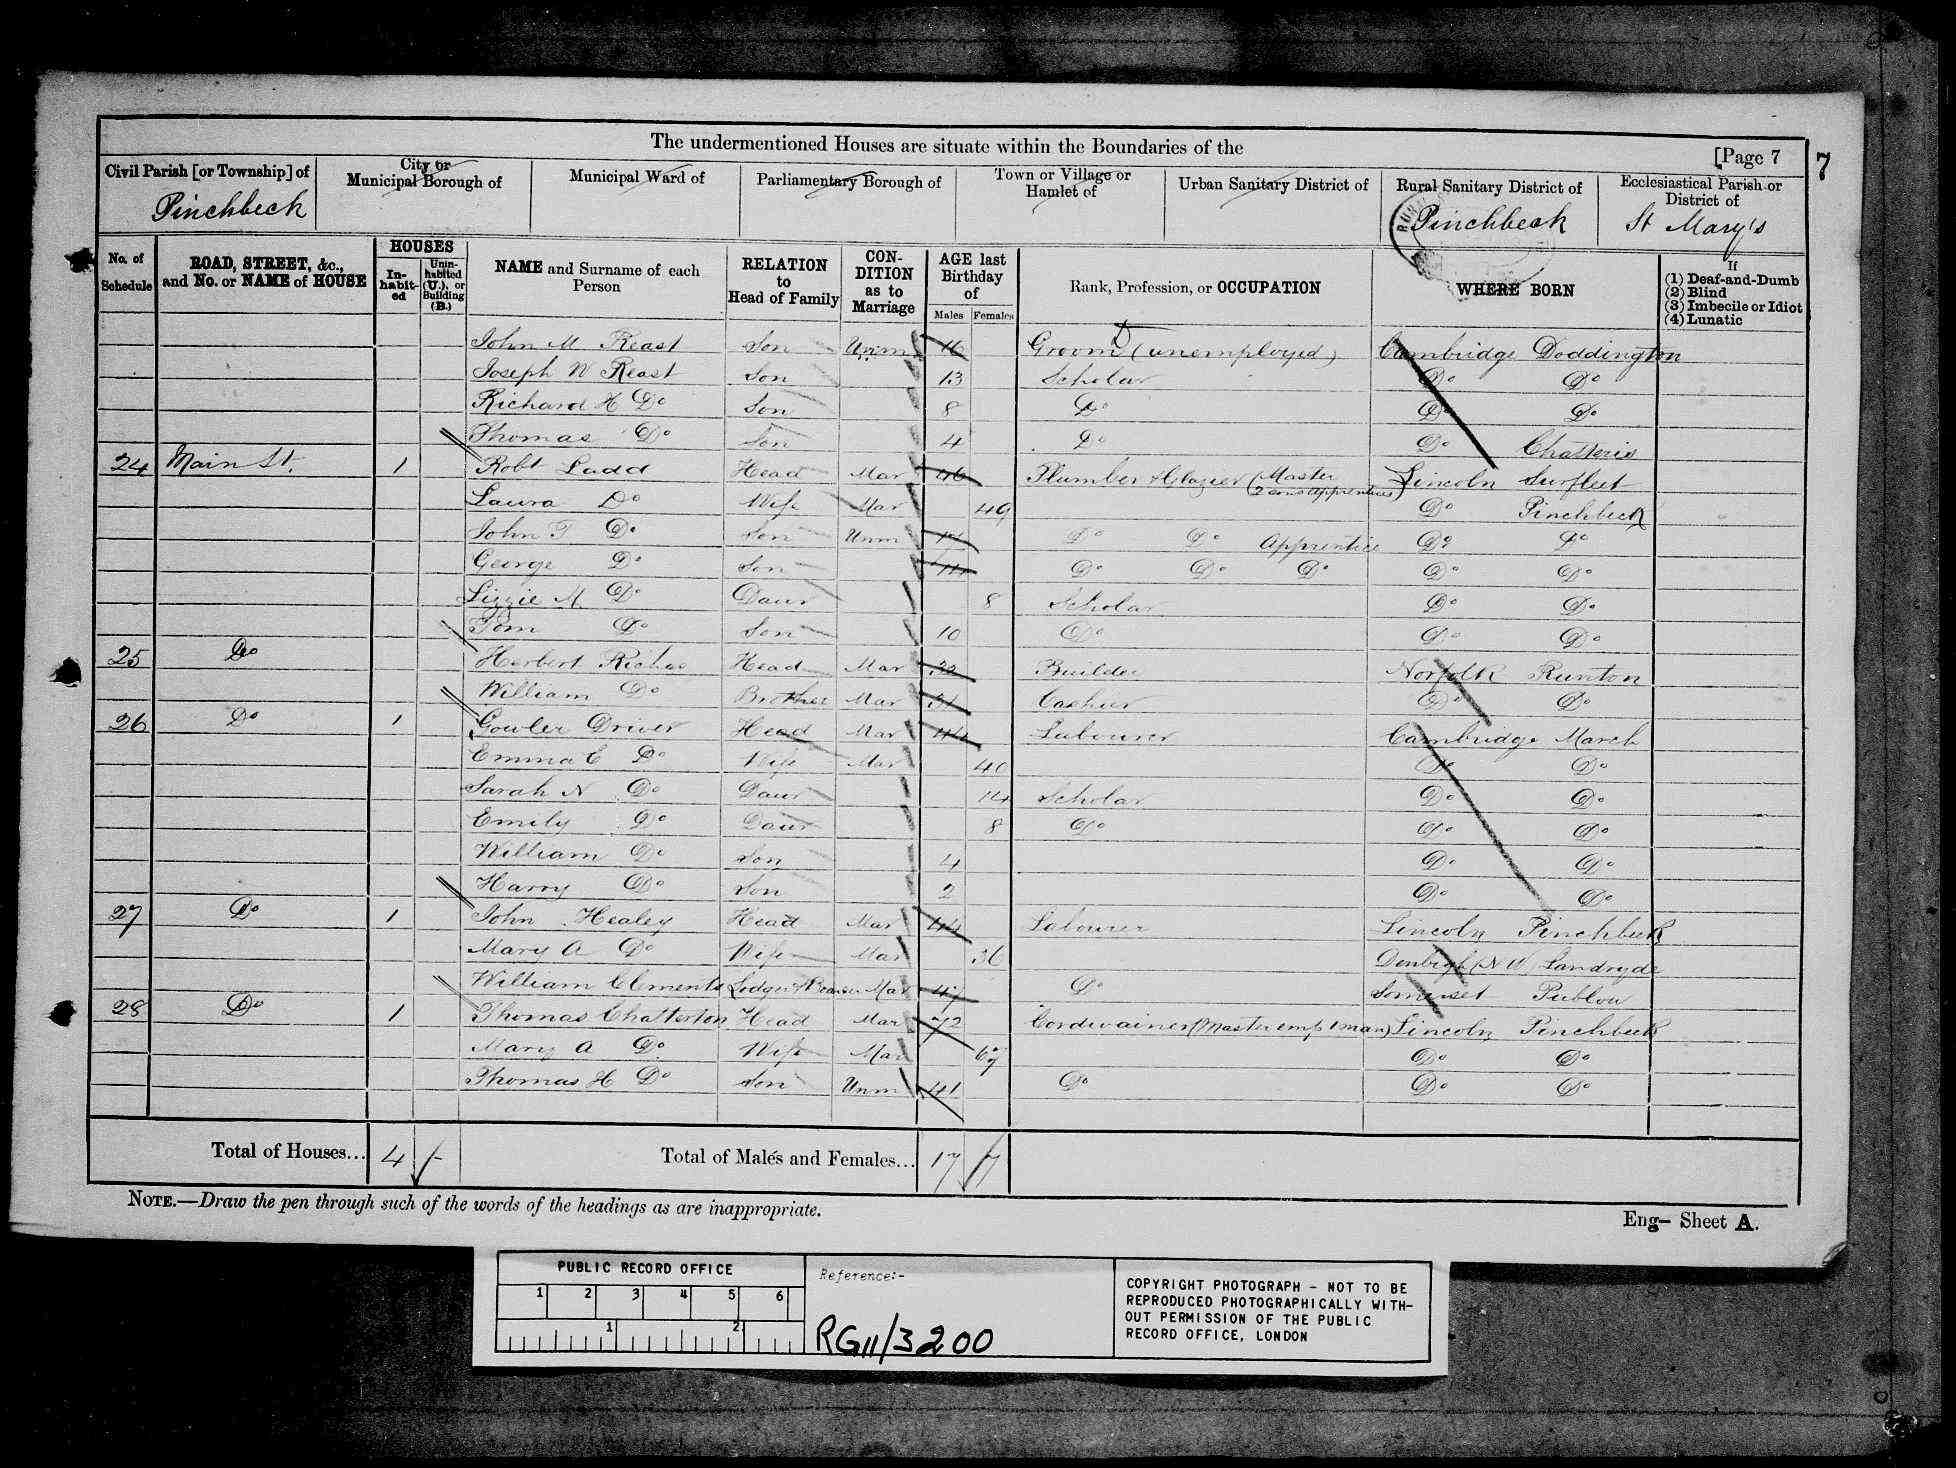 The undermentioned Houses are situate within the Boundaries of the
[Page 7
7
Civil Parish [or Township] of
Pinchbeck
City or Municipal Borough of
Municipal Ward of
Parliamentary Borough of
Town or Village or Hamlet of
Urban Sanitary District of
Rural Sanitary District of
Pinchbeck
Ecclesiastical Parish or District of
St Mary's
No. of Schedule
ROAD, STREET, &c., and No. or NAME of HOUSE
HOUSES
In-habit-ed
Unin-habited (U.), or Building (B.)
NAME and Surname of each Person
RELATION to Head of Family
CON-DITION as to Marriage
AGE last Birthday of
Males Females
Rank, Profession, or OCCUPATION
WHERE BORN
If
(1) Deaf-and-Dumb
(2) Blind
(3) Imbecile or Idiot
(4) Lunatic
John M Reast Son Unm 16 Groom (unemployed) Cambridge Doddington
Joseph W Reast Son 13 Scholar Do Do
Richard H Do Son 8 Do Do Do
Thomas Do Son 4 Do Do Chatteris
24 Main St. 1 Robt Ladd Head Mar 46 Plumber & Glazier (Master 2 sons apprentices) Lincoln Surfleet
Laura Do Wife Mar 49 Do Pinchbeck
John T Do Son Unm Do Do Apprentice Do Do
George Do Son 14 Do Do Do Do Do
Lizzie M Do Daur 8 Scholar Do Do
Tom Do Son 10 Do Do Do
25 Do Herbert Riches Head Mar 32 Builder Norfolk Runton
William Do Brother Mar 31 Cashier Do Do
26 Do 1 Gowler Driver Head Mar 44 Labourer Cambridge March
Emma E Do Wife Mar 40 Do Do
Sarah N Do Daur 14 Scholar Do Do
Emily Do Daur 8 Do Do Do
William Do Son 4 Do Do
Harry Do Son 2 Do Do
27 Do 1 John Healey Head Mar 44 Labourer Lincoln Pinchbeck
Mary A Do Wife Mar 36 Denbigh (N W) Landryde
William Clements Lodger Mar 47 Do Somerset Publow
28 Do 1 Thomas Chatterton Head Mar 72 Cordwainer (Master emp 1 man) Lincoln Pinchbeck
Mary A Do Wife Mar 67 Do Do
Thomas H Do Son Unm 41 Do Do Do
Total of Houses... 4 Total of Males and Females... 17 7
NOTE.—Draw the pen through such of the words of the headings as are inappropriate.
Eng— Sheet A.
PUBLIC RECORD OFFICE
1 2 3 4 5 6
1 2
Reference:-
RG11/3200
COPYRIGHT PHOTOGRAPH - NOT TO BE
REPRODUCED PHOTOGRAPHICALLY WITH-
OUT PERMISSION OF THE PUBLIC
RECORD OFFICE, LONDON